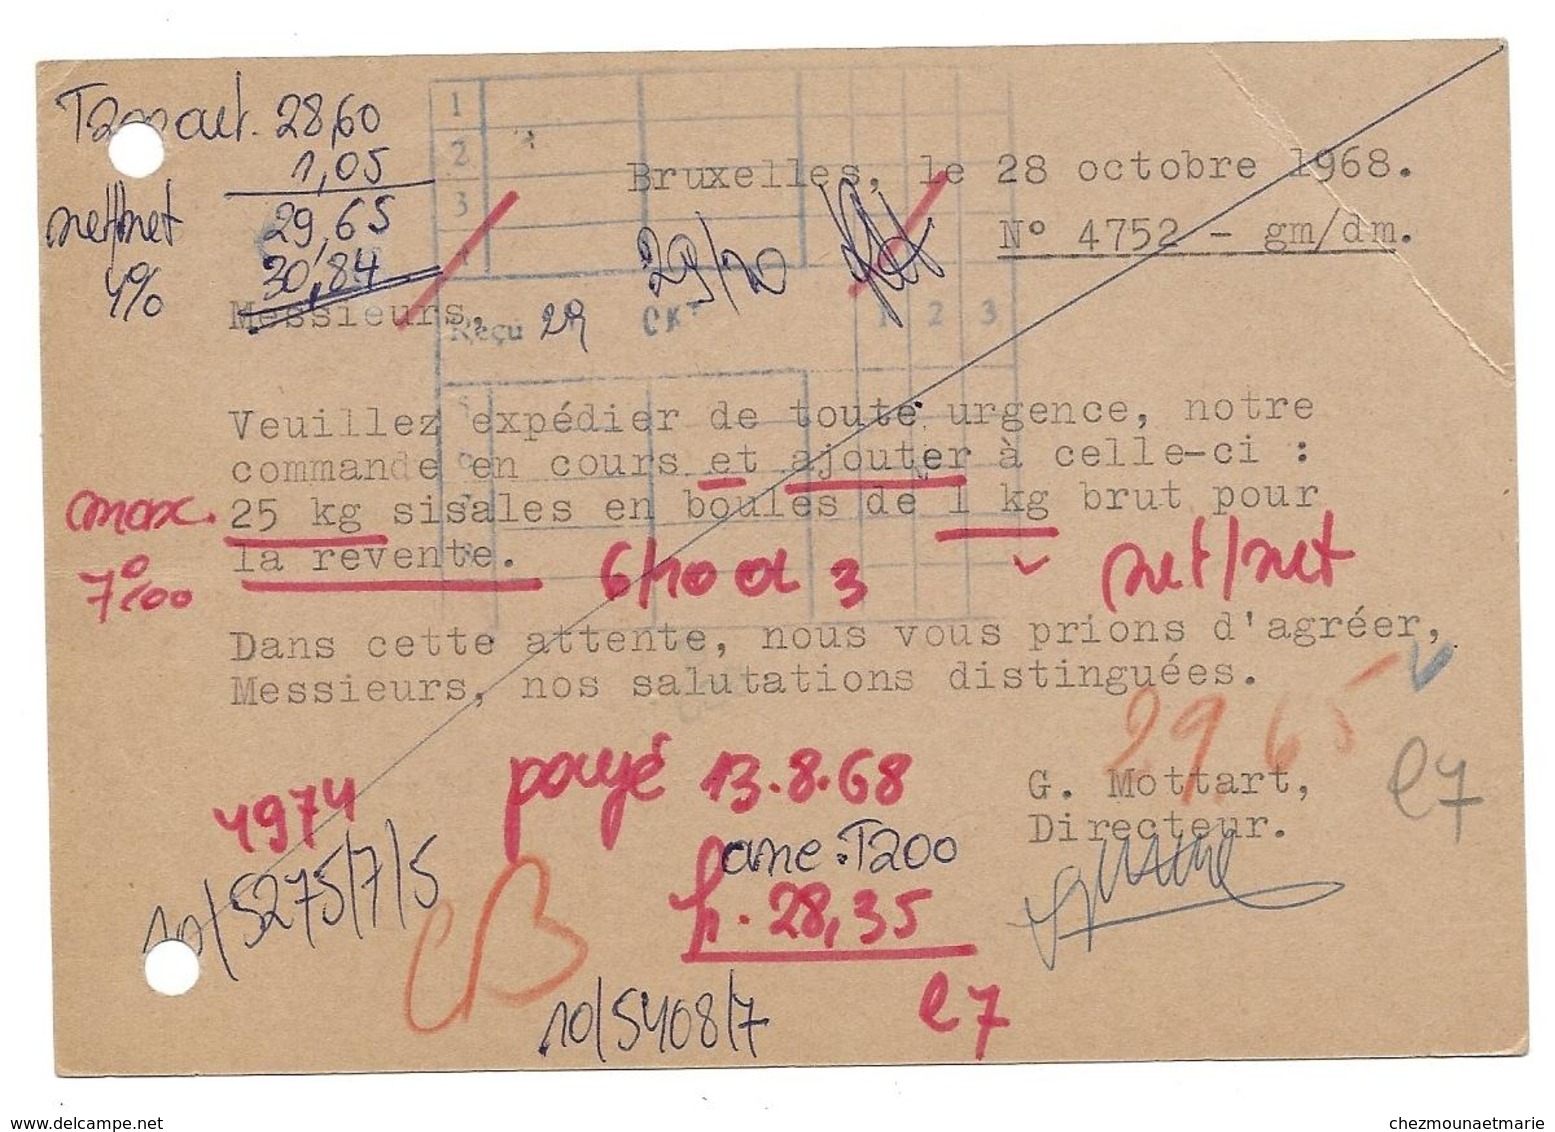 28,60
1,05
net/net 29,65
4% 30,84
1
2
3
Bruxelles, le 28 octobre 1968.
N° 4752 - gm/dm.
29/10
Messieurs,
Reçu 29
1 2 3
Veuillez expédier de toute urgence, notre
commande en cours et ajouter à celle-ci :
max. 25 kg sisales en boules de 1 kg brut pour
la revente.
7°/00 6/10 a 3 net/net
Dans cette attente, nous vous prions d'agréer,
Messieurs, nos salutations distinguées.
29.65
payé 13.8.68
G. Mottart,
Directeur.
4974
anc. T200
10/5275/7/5
28,35
CB
10/5408/7
www.delcampe.net
chezmounaetmarie